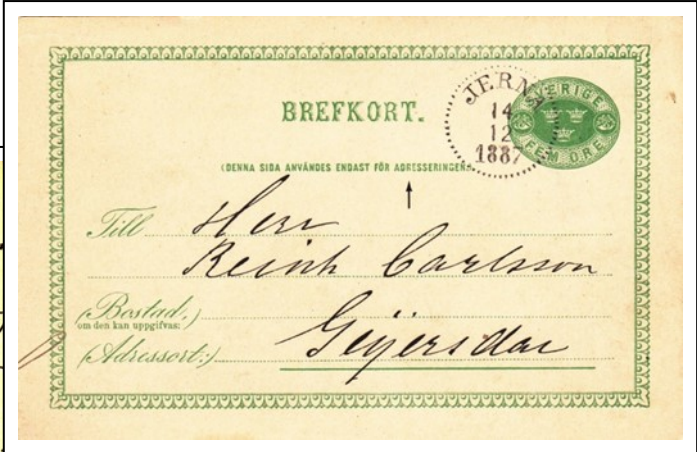 BREFKORT.
JERNA
14
12
1887
SVERIGE
FEM ÖRE
(DENNA SIDA ANVÄNDES ENDAST FÖR ADRESSERINGEN.)
Till Herr
Reinh Carlsson
(Bostad,
om den kan uppgifvas:)
(Adressort:) Geijersdal